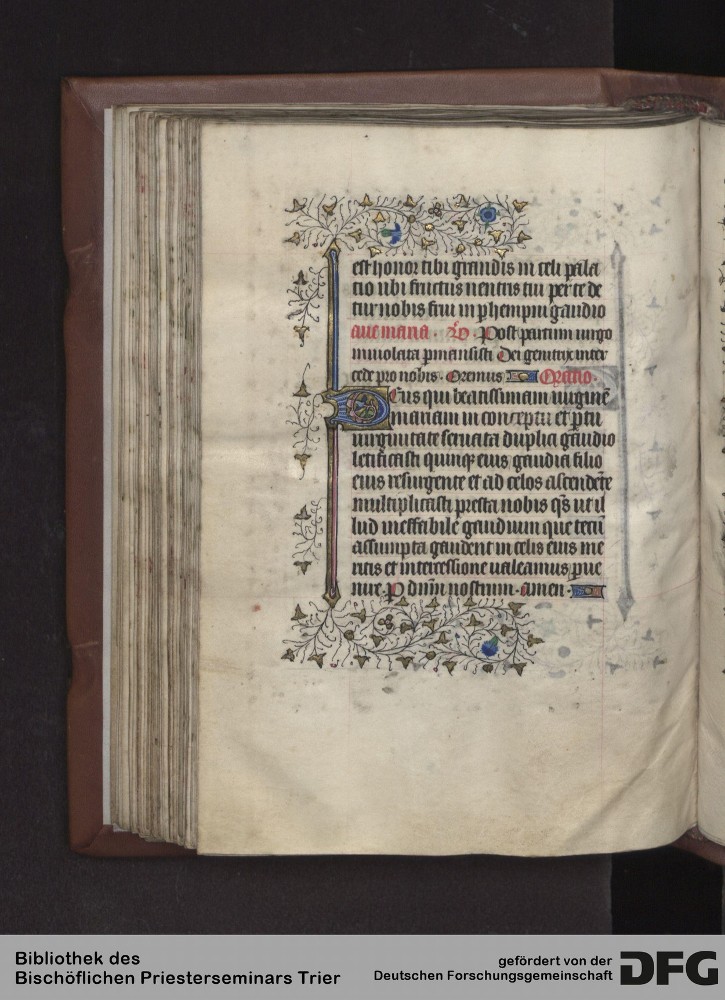 est honor tibi grandis in celi pala
cio ubi fructus uentris tui per te de
tur nobis frui in phempni gaudio
aue maria. V. Post partum uirgo
inuiolata pmansisti Dei genitrix inter
cede pro nobis. Oremus Oratio.
Deus qui beatissimam uirginē
mariam in conceptu et ptu
uirginitate seruata duplici gaudio
letificasti quinqȝ eius gaudia filio
eius resurgente et ad celos ascendēte
multiplicasti presta nobis qs̄ ut il
lud ineffabile gaudium quo tecū
assumpta gaudent in celis eius me
ritis et intercessione ualeamus pue
nire. P dnm̄ nostrum. amen.
Bibliothek des
Bischöflichen Priesterseminars Trier
gefördert von der
Deutschen Forschungsgemeinschaft
DFG